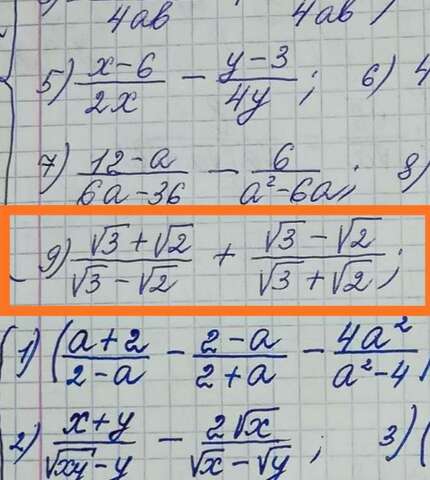 4ab 4ab
5) (x-6)/(2x) - (y-3)/(4y); 6) 4
7) (12-a)/(6a-36) - 6/(a²-6a); 8)
9) (√3+√2)/(√3-√2) + (√3-√2)/(√3+√2);
1) ((a+2)/(2-a) - (2-a)/(2+a) - 4a²/(a²-4)
2) (x+y)/(√xy-y) - 2√x/(√x-√y); 3) (